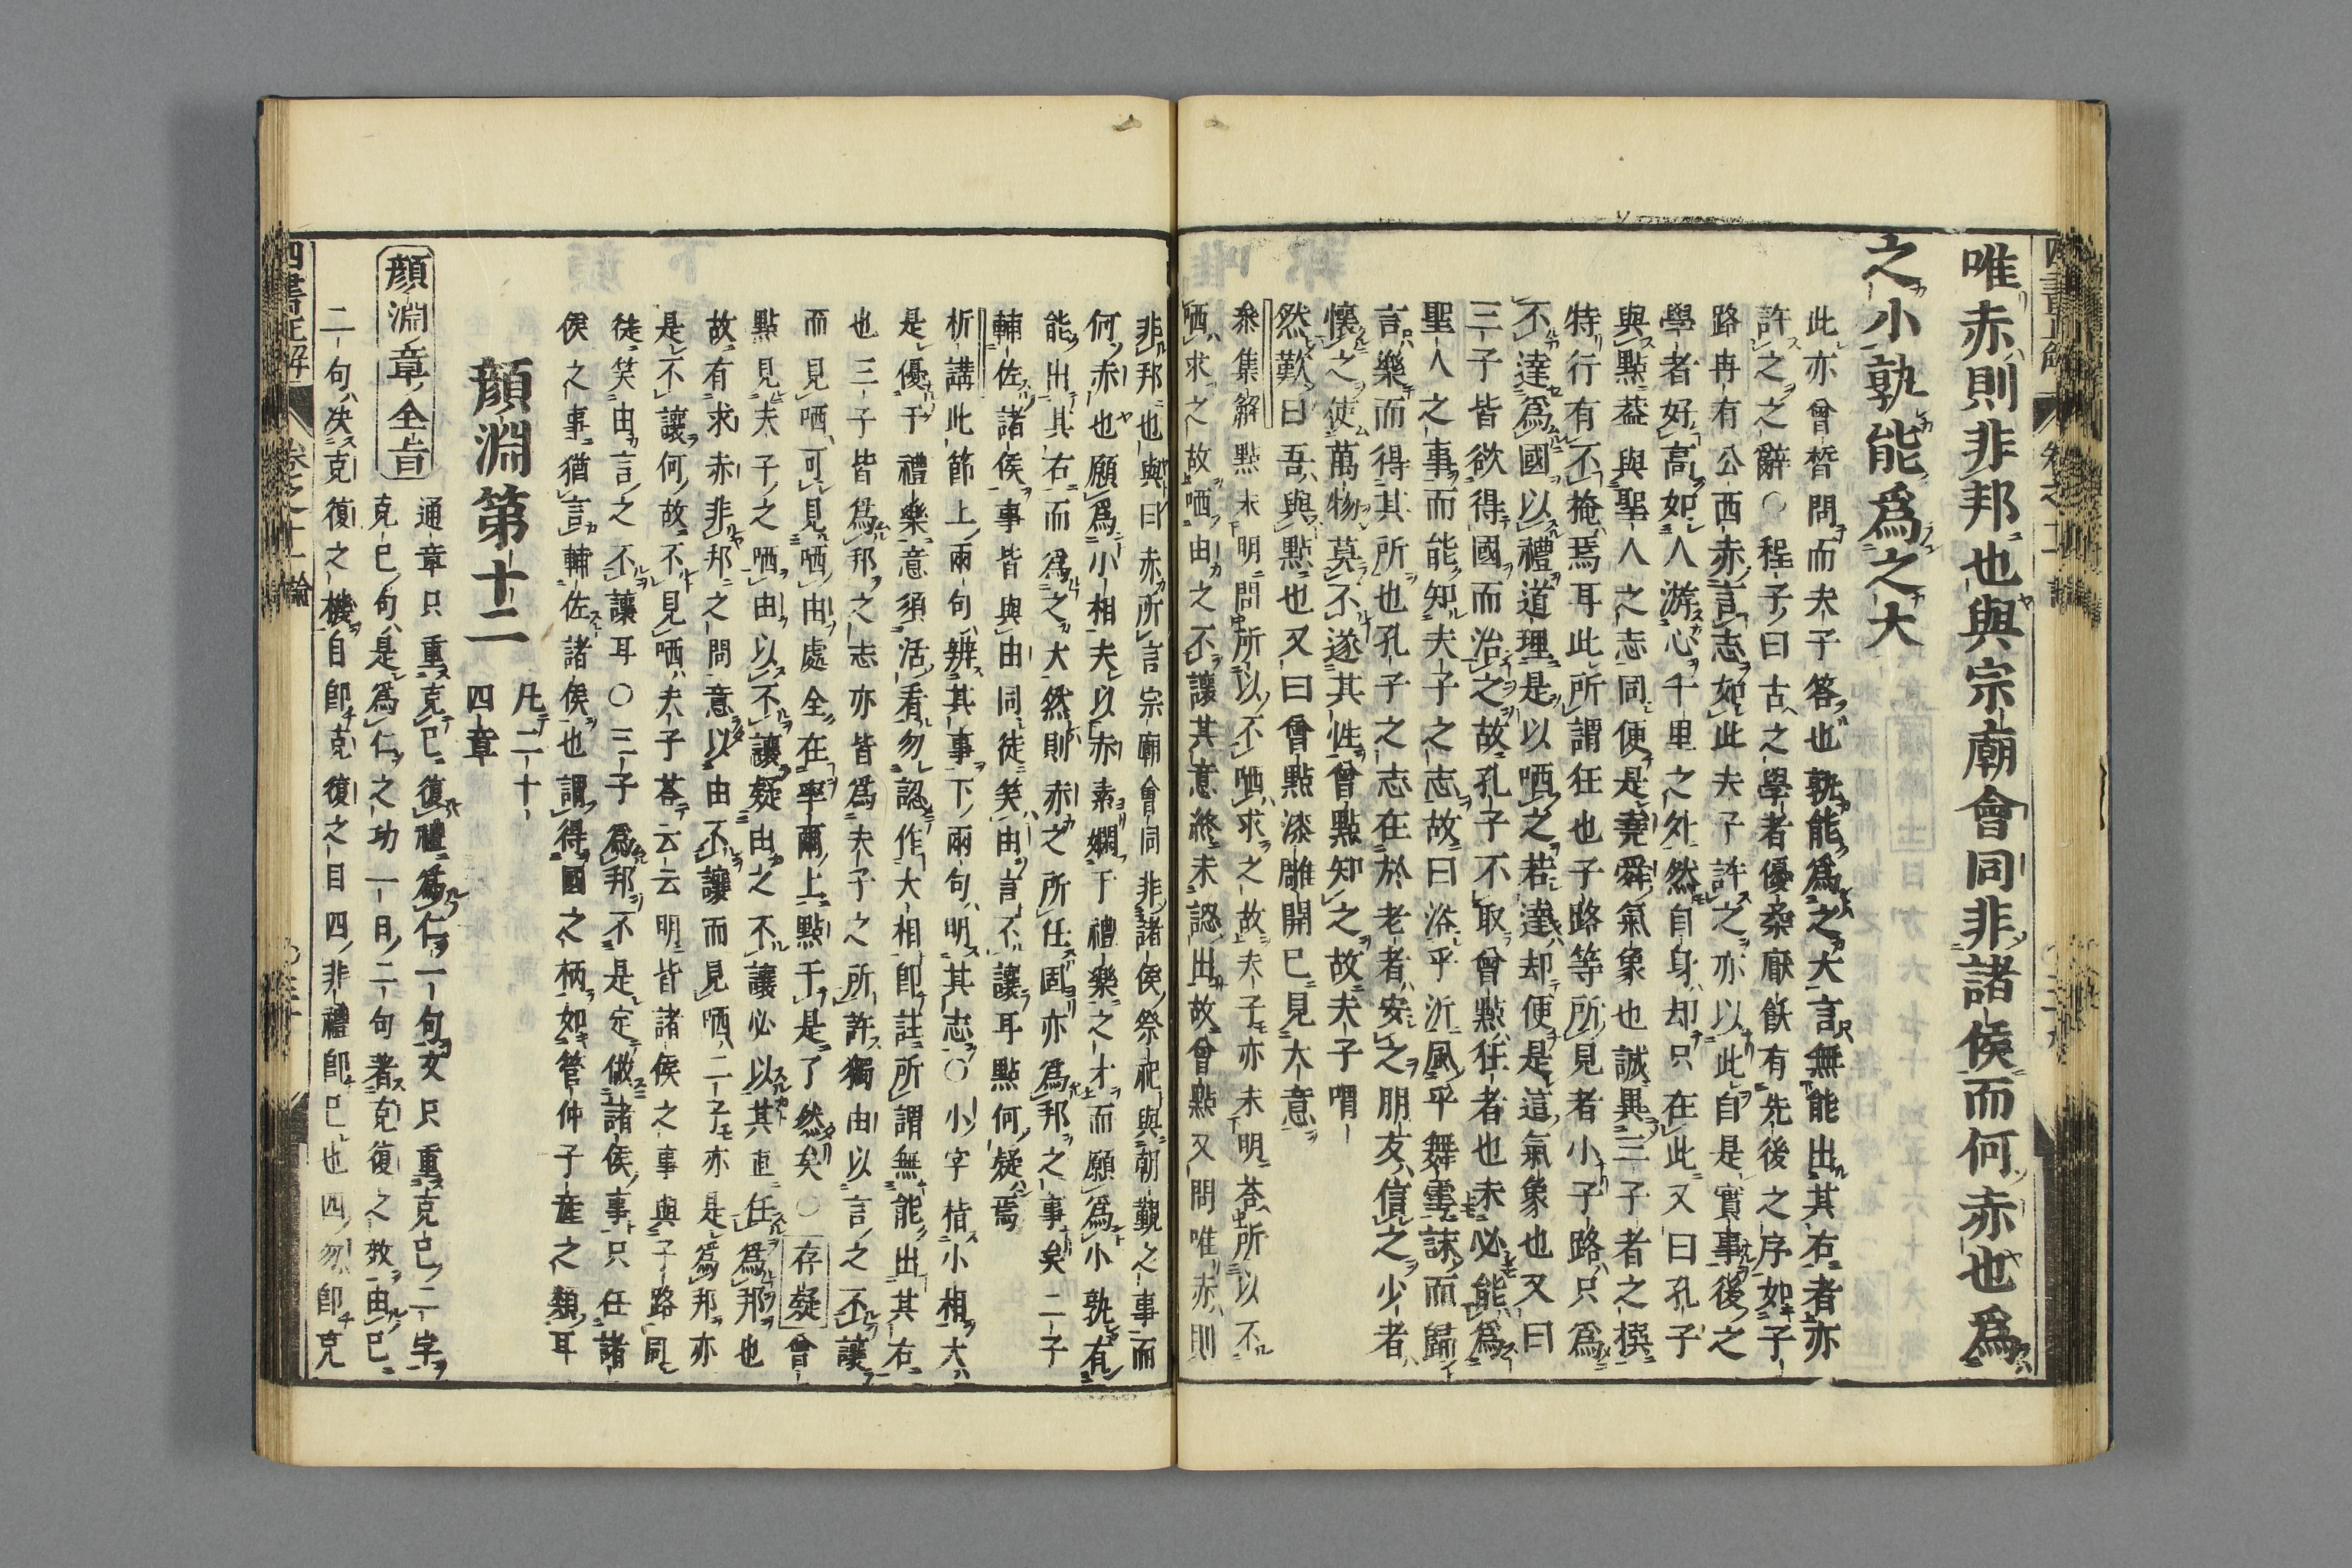 唯赤則非邦也與宗廟會同非諸侯而何赤也爲
之小孰能爲之大
此亦曾晳問而夫子答也孰能爲之大言無能出其右者亦
許之之辭○程子曰古之學者優柔厭飫有先後之序如子
路冉有公西赤言志如此夫子許之亦以此自是實事後之
學者好高如人游心千里之外然自身却只在此又曰孔子
與點葢與聖人之志同便是堯舜氣象也誠異三子者之撰
特行有不掩焉耳此所謂狂也子路等所見者小子路只爲
不達爲國以禮道理是以哂之若達却便是這氣象也又曰
三子皆欲得國而治之故孔子不取曾點狂者也未必能爲
聖人之事而能知夫子之志故曰浴乎沂風乎舞雩詠而歸
言樂而得其所也孔子之志在於老者安之朋友信之少者
懷之使萬物莫不遂其性曾點知之故夫子喟
然歎曰吾與點也又曰曾點漆雕開已見大意
叅集解點未明問所以不哂求之故夫子亦未明荅所以不
哂求之故哂由之不讓其意終未認出故曾點又問唯赤則
非邦也與曰赤所言宗廟會同非諸侯祭祀與朝覲之事而
何赤也願爲小相夫以赤素嫻于禮樂之才而願爲小孰有
能出其右而爲之大然則赤之所任固亦爲邦之事矣二子
輔佐諸侯事皆與由同徒笑由言不讓耳點何疑焉
析講此節上兩句辨其事下兩句明其志○小字指小相大
是優于禮樂意須活看勿認作大相卽註所謂無能出其右
也三子皆爲邦之志亦皆爲夫子之所許獨由以言之不讓
而見哂可見哂由處全在率爾上點于是了然矣○存疑曾
點見夫子之哂由以不讓疑由之不讓必以其直任爲邦也
故有求赤非邦之問意以由不讓而見哂二子亦是爲邦亦
是不讓何故不見哂夫子荅云云明皆諸侯之事與子路同
徒笑由言之不讓耳○三子爲邦不是定做諸侯事只任諸
侯之事猶言輔佐諸侯也謂得國之柄如管仲子產之類耳
顏淵第十二
凡二十
四章
顏淵章全旨
通章只重克己復禮爲仁一句文只重克己二字
克己句是爲仁之功一日二句著克復之效由己
二句決克復之機自卽克復之目四非禮卽己也四勿卽克
四書正解
卷之十一
論